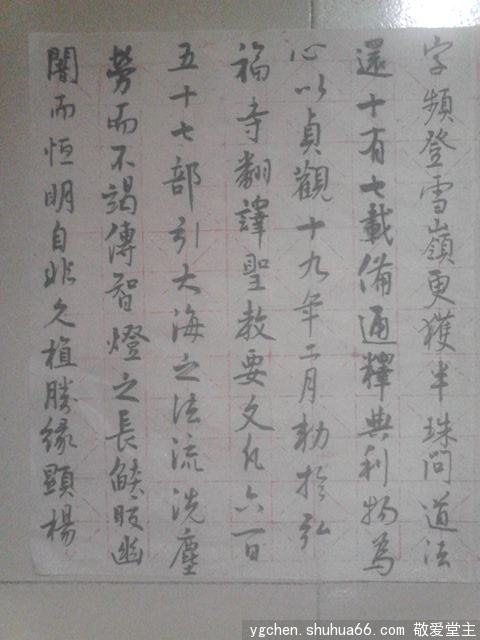 字頻登雪嶺更獲半珠問道法
還十有七載備通釋典利物為
心以貞觀十九年二月勅於弘
福寺翻譯聖教要文凡六百
五十七部引大海之法流洗塵
勞而不竭傳智燈之長燄皎幽
闇而恒明自非久植勝緣顯楊
ygchen.shuhua66.com 敬爱堂主